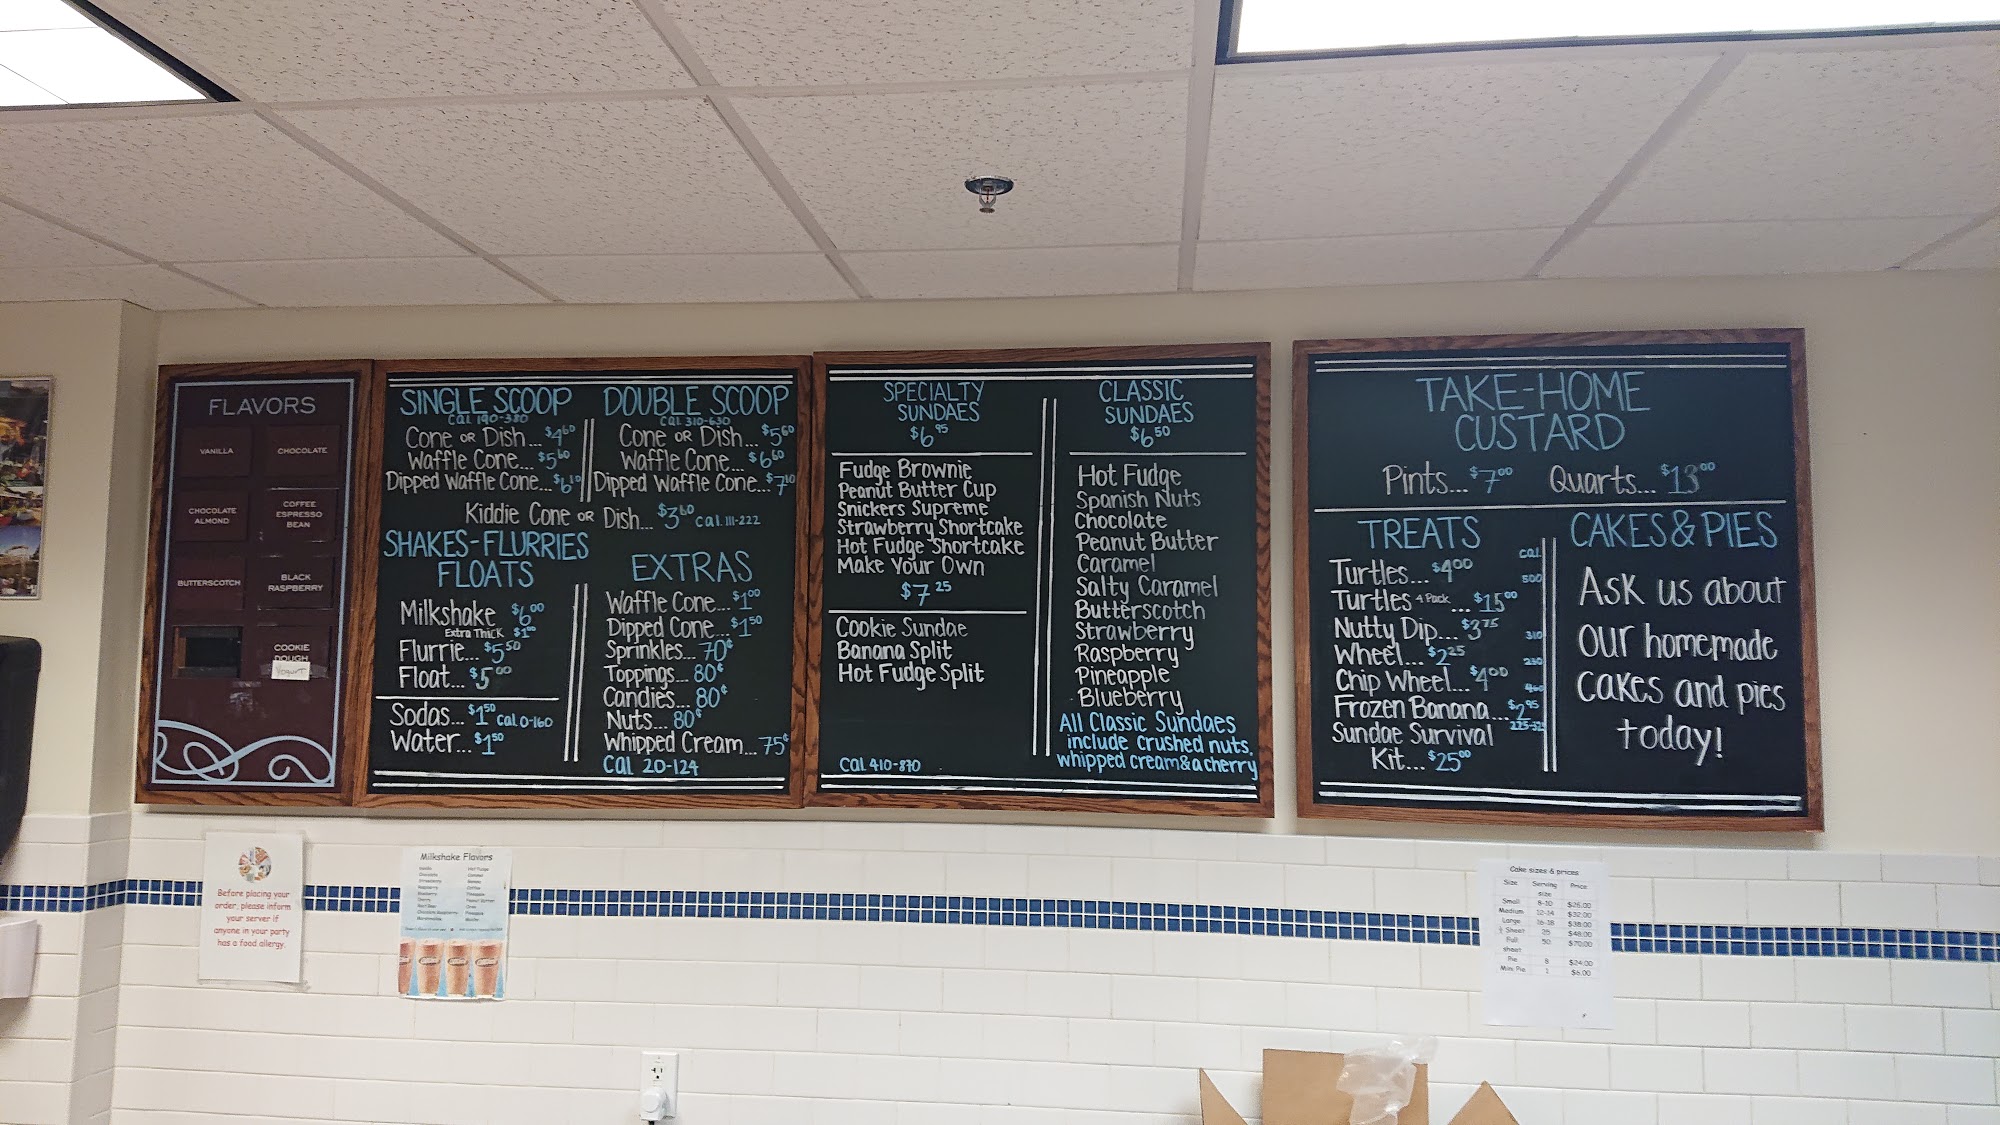 FLAVORS
VANILLA
CHOCOLATE
CHOCOLATE
ALMOND
COFFEE
ESPRESSO
BEAN
BUTTERSCOTCH
BLACK
RASPBERRY
COOKIE
DOUGH
Yogurt
SINGLE SCOOP
Cal 190-380
Cone or Dish... $4.60
Waffle Cone... $5.60
Dipped Waffle Cone... $6.10
DOUBLE SCOOP
Cal 310-630
Cone or Dish... $5.60
Waffle Cone... $6.60
Dipped Waffle Cone... $7.10
Kiddie Cone or Dish... $3.60 Cal 111-222
SHAKES-FLURRIES
FLOATS
Milkshake $6.00
Extra Thick $1.00
Flurrie... $5.50
Float... $5.00
Sodas... $1.50 Cal 0-160
Water... $1.50
EXTRAS
Waffle Cone... $1.00
Dipped Cone... $1.50
Sprinkles... 70¢
Toppings... 80¢
Candies... 80¢
Nuts... 80¢
Whipped Cream... 75¢
Cal 20-124
SPECIALTY
SUNDAES
$6.95
Fudge Brownie
Peanut Butter Cup
Snickers Supreme
Strawberry Shortcake
Hot Fudge Shortcake
Make Your Own
$7.25
Cookie Sundae
Banana Split
Hot Fudge Split
Cal 410-870
CLASSIC
SUNDAES
$6.50
Hot Fudge
Spanish Nuts
Chocolate
Peanut Butter
Caramel
Salty Caramel
Butterscotch
Strawberry
Raspberry
Pineapple
Blueberry
All Classic Sundaes
include crushed nuts,
whipped cream & a cherry
TAKE-HOME
CUSTARD
Pints... $7.00 Quarts... $13.00
TREATS
Cal
Turtles... $4.00 500
Turtles 4 Pack ... $15.00
Nutty Dip... $3.75 310
Wheel... $2.25 230
Chip Wheel... $4.00 460
Frozen Banana... $2.95
Sundae Survival
Kit... $25.00
CAKES & PIES
Ask us about
our homemade
cakes and pies
today!
Before placing your
order, please inform
your server if
anyone in your party
has a food allergy.
Milkshake Flavors
Cake sizes & prices
Size Serving size Price
Small 8-10 $26.00
Medium 12-14 $32.00
Large 16-18 $38.00
½ Sheet 25 $48.00
Full sheet 50 $70.00
Pie 8 $24.00
Mini Pie 1 $6.00